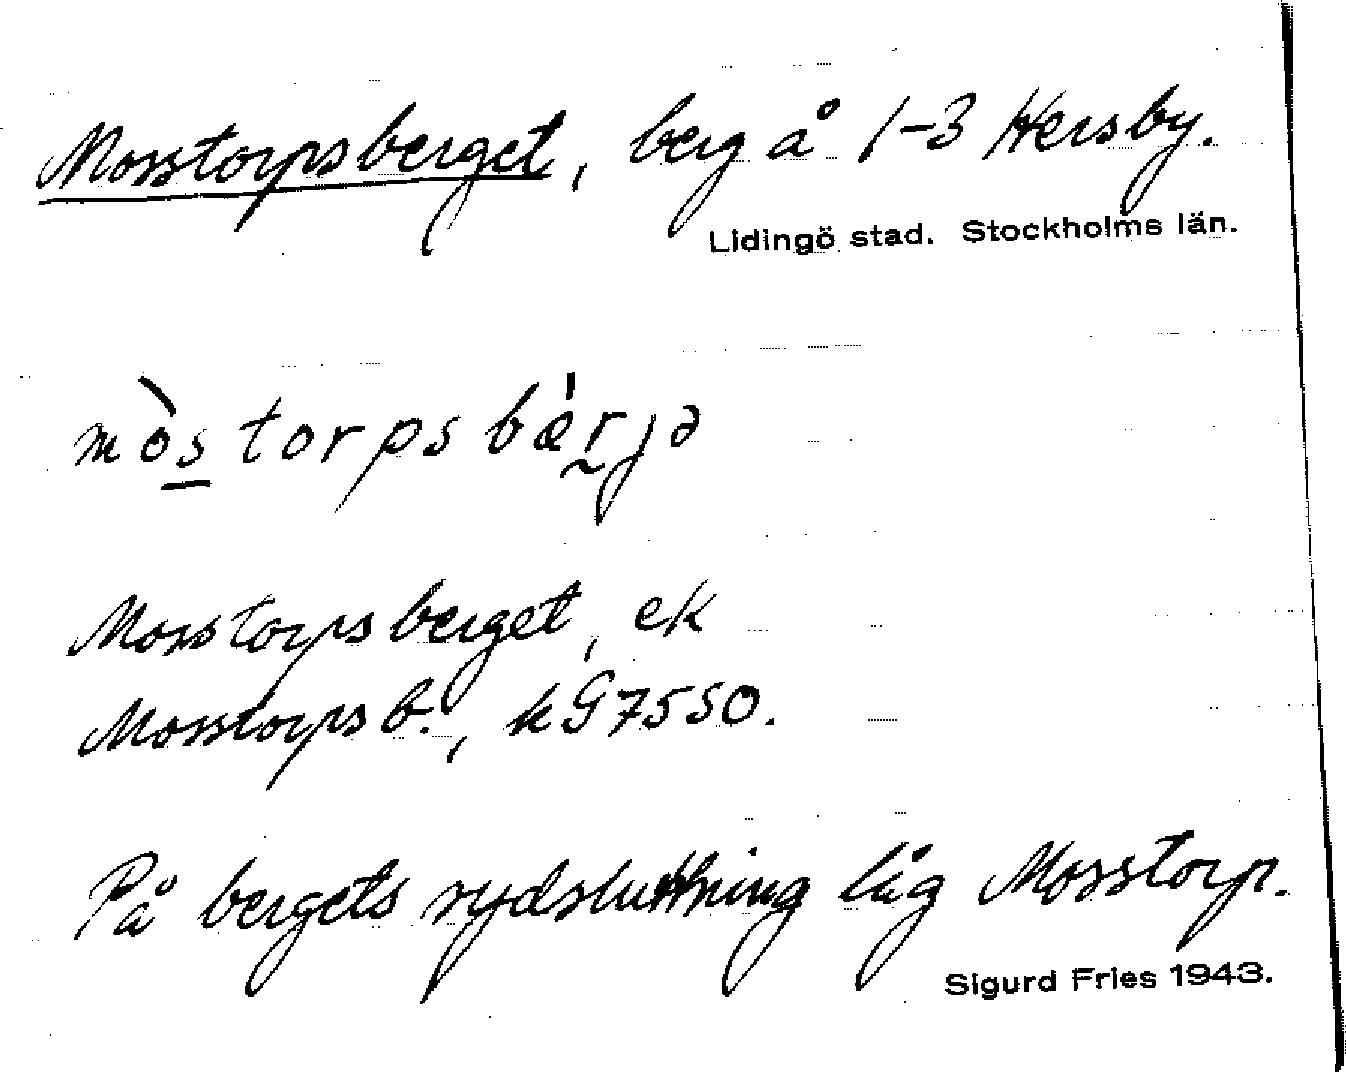 Mosstorpsberget, berg å 1-3 Hersby.
Lidingö stad. Stockholms län.
mòs torps bǽrjə
Mosstorpsberget, ek
Mosstorpsb., kG7550.
På bergets sydsluttning låg Mosstorp.
Sigurd Fries 1943.